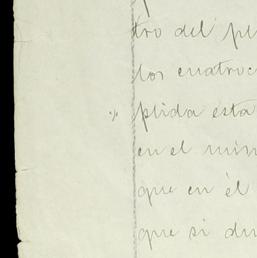 tro del pl
los cuatroc
plida esta
en el min
que en él
que si du